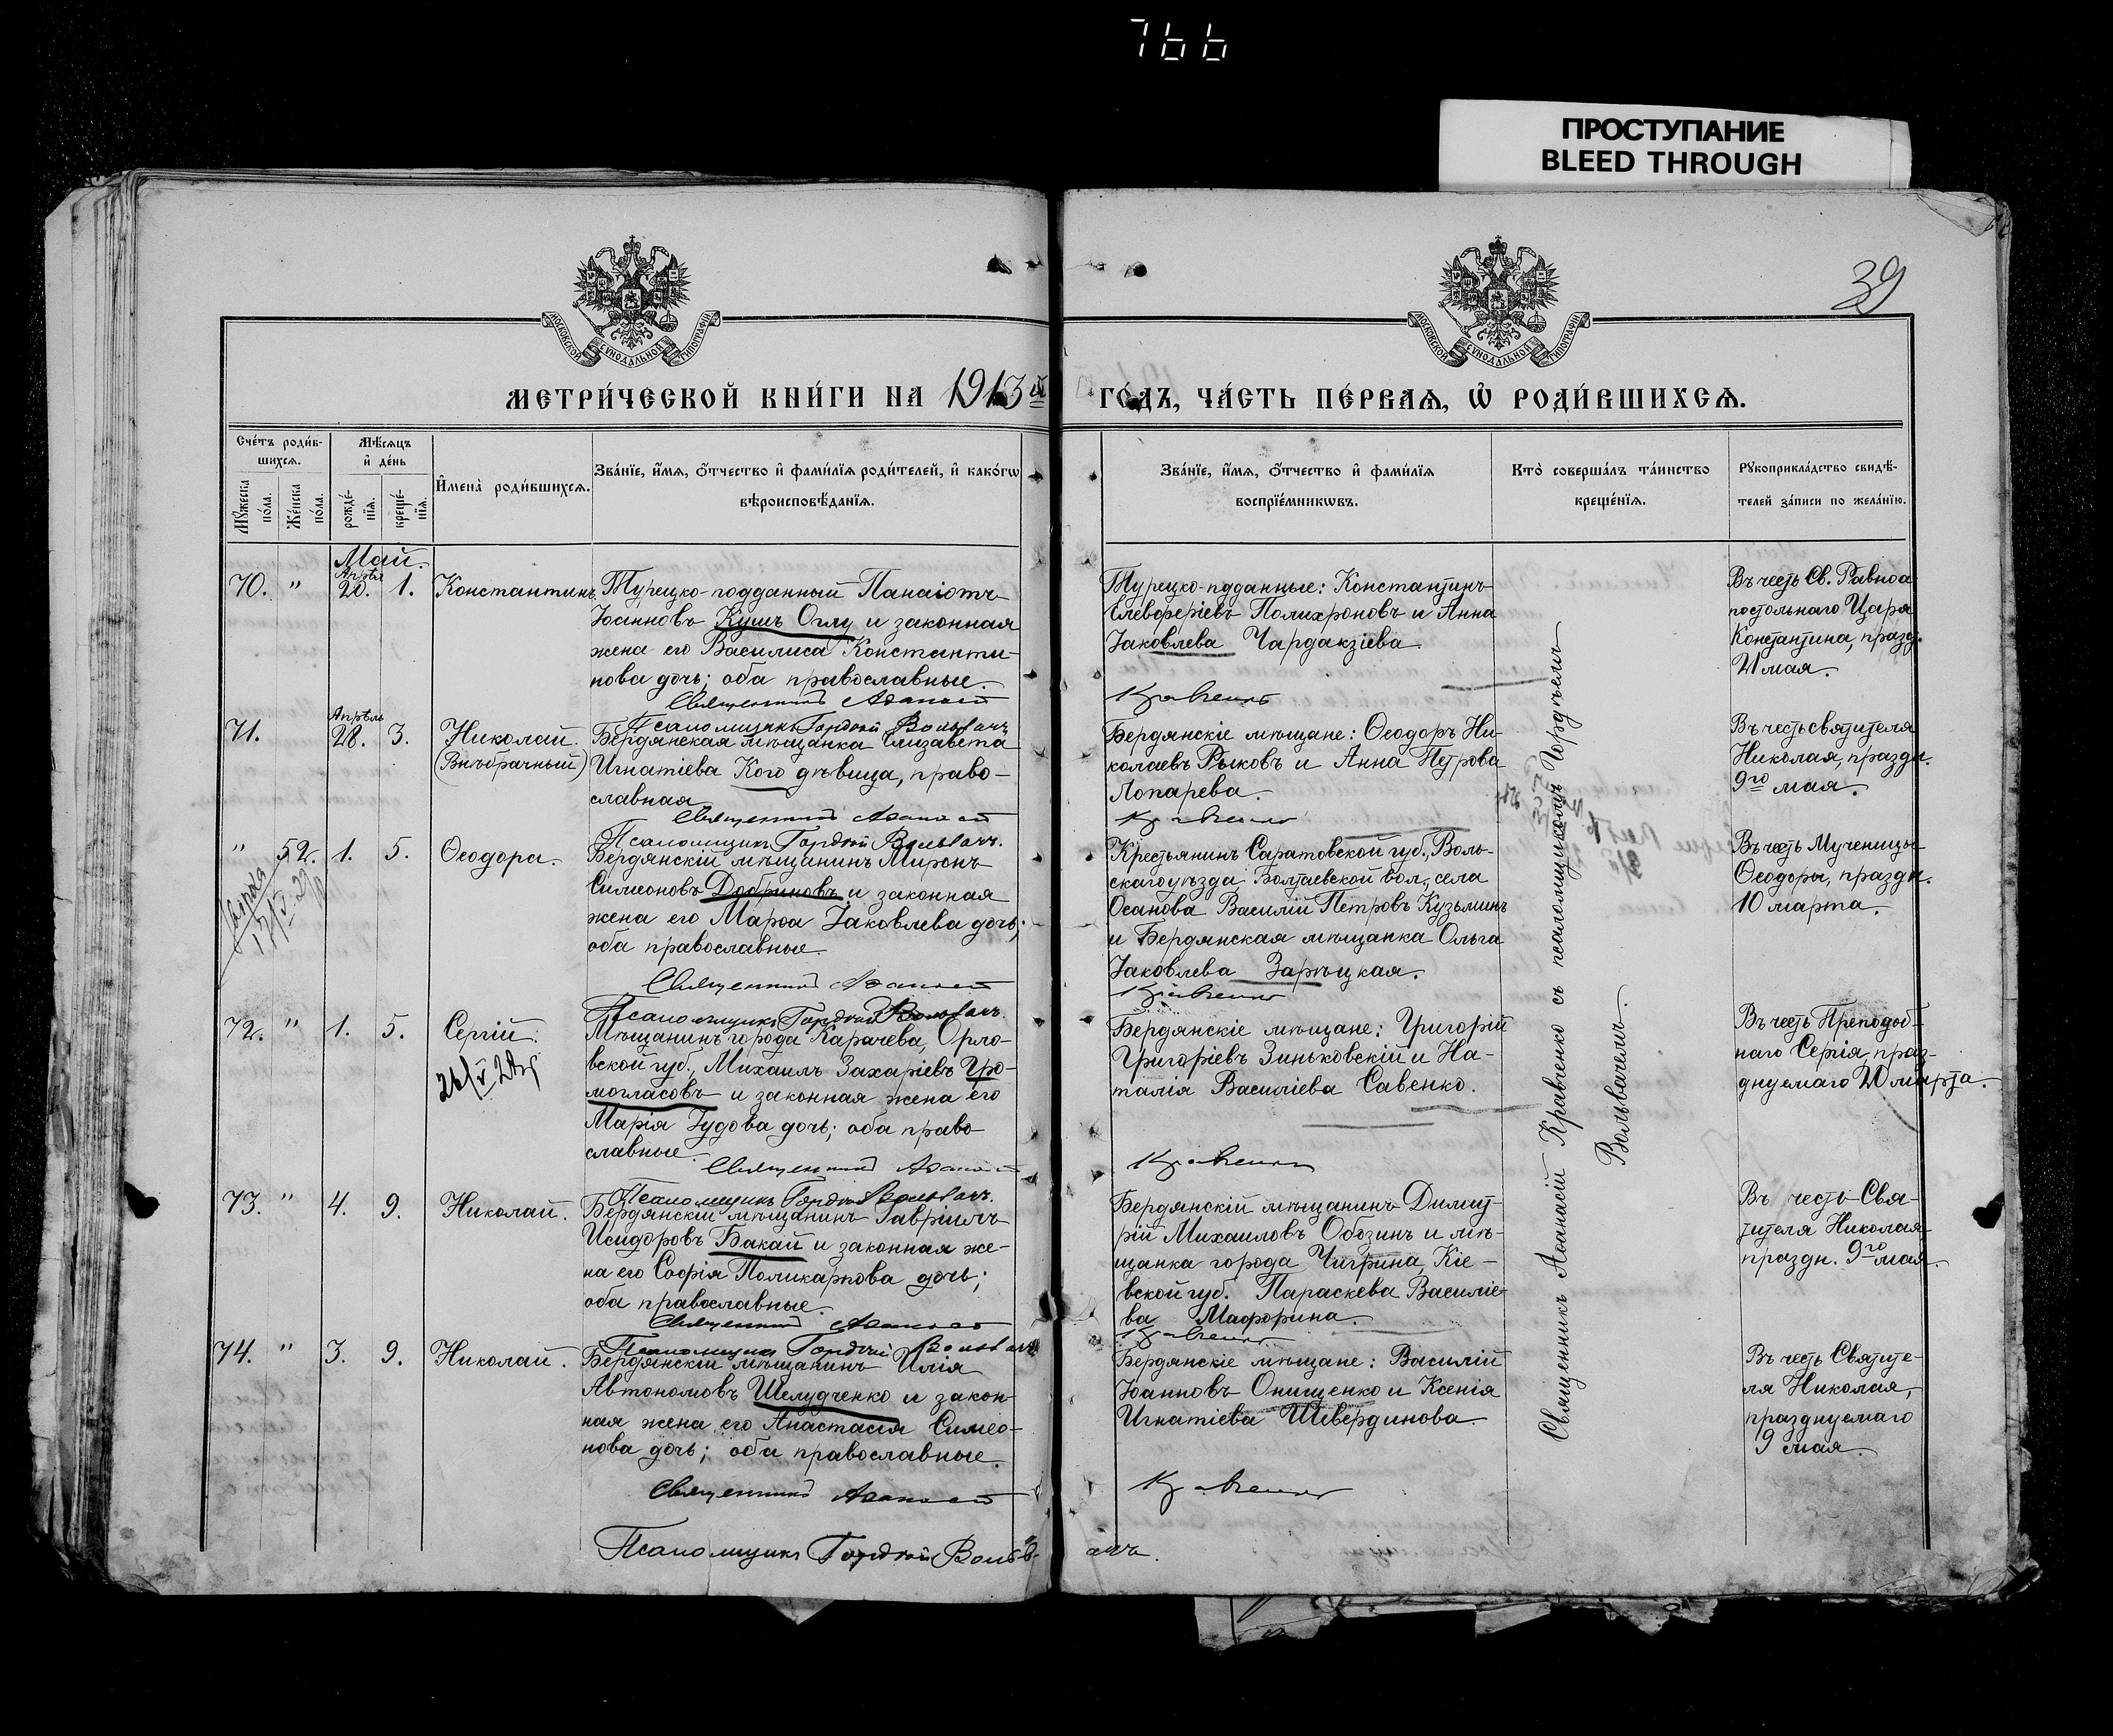 766
ПРОСТУПАНИЕ
BLEED THROUGH
39
МОСКОВСКОЙ СѴНОДАЛЬНОЙ ТИПОГРАФІИ
МОСКОВСКОЙ СѴНОДАЛЬНОЙ ТИПОГРАФІИ
МЕТРИ́ЧЕСКОЙ КНИ́ГИ НА 1913й ГО́ДЪ, ЧА́СТЬ ПЕ́РВАѦ, Ѡ҆ РОДИ́ВШИХСѦ.
Сче́тъ роди́в-
шихсѧ.
Мѣ́сѧцъ
и҆ де́нь
Мꙋ́жеска
по́ла.
Же́нска
по́ла.
рожде́-
нїѧ.
креще́-
нїѧ.
И҆мена̀ роди́вшихсѧ.
Зва́нїе, и҆́мѧ, ѻ҆́тчество и҆ фами́лїѧ роди́телей, и҆ како́гѡ
вѣроисповѣ́данїѧ.
Зва́нїе, и҆́мѧ, ѻ҆́тчество и҆ фами́лїѧ
воспрїе́мникѡвъ.
Кто̀ соверша́лъ та́инство
креще́нїѧ.
Рꙋкоприкла́дство свидѣ́-
телей за́писи по жела́нїю.
Май.
70. " Апрѣл 20. 1. Константинъ.
Турецко-подданный Панаіотъ
Іоанновъ Кушъ Оглу и законная
жена его Василиса Константи-
нова дочь; оба православные.
Священникъ Аѳанасій
Псаломщикъ Гордѣй Вольвачъ
Турецко-пдданные: Константинъ
Елевферіевъ Полихроновъ и Анна
Іаковлева Чардакзіева.
Кравченко
Въ честь Св. Равноа-
постольнаго Царя
Константина, празд.
21 мая.
71. Апрѣль 28. 3. Николай.
(Внѣбрачный)
Бердянская мѣщанка Елизавета
Игнатіева Кого дѣвица, право-
славная.
Священникъ Аѳанасій
Псаломщикъ Гордѣй Вольвачъ.
Бердянскіе мѣщане: Ѳеодоръ Ни-
колаевъ Рыковъ и Анна Петрова
Лопарева.
Кравченко
Въ честь святителя
Николая, праздн.
9го мая.
" 52. 1. 5. Ѳеодора.
Бердянскій мѣщанинъ Миронъ
Симеоновъ Добриновъ и законная
жена его Марѳа Іаковлева дочь;
оба православные.
Священникъ Аѳанасій
Псаломщикъ Гордѣй Вольвачъ.
Крестьянинъ Саратовской губ., Воль-
скаго уѣзда Болтаевской вол., села
Осанова Василій Петровъ Кузьминъ
и Бердянская мѣщанка Ольга
Іаковлева Зарѣцкая.
Кравченко
Въ честь Мученицы
Ѳеодоры, праздн.
10 марта.
72. " 1. 5. Сергій.
Мѣщанинъ города Карачева, Орло-
вской губ., Михаилъ Захаріевъ Гро-
могласовъ и законная жена его
Марія Іудова дочь; оба право-
славные.
Священникъ Аѳанасій
Псаломщикъ Гордѣй Вольвачъ.
Бердянскіе мѣщане: Григорій
Григоріевъ Зиньковскій и На-
талія Василіева Савенко.
Кравченко
Въ честь Преподоб-
наго Сергія, праз-
днуемаго 20 марта.
73. " 4. 9. Николай.
Бердянскій мѣщанинъ Гавріилъ
Исидоровъ Бакай и законная же-
на его Софія Поликарпова дочь;
оба православные.
Священникъ Аѳанасій
Псаломщикъ Гордѣй Вольвачъ
Бердянскій мѣщанинъ Димит-
рій Михаиловъ Обозинъ и мѣ-
щанка города Чигрина, Кіе-
вской губ. Параскева Василіе-
ва Мафорина.
Кравченко
Въ честь Свя-
тителя Николая
праздн. 9го мая.
74. " 3. 9. Николай.
Бердянскій мѣщанинъ Илія
Автономовъ Шелудченко и закон-
ная жена его Анастасія Симео-
нова дочь; оба православные.
Священникъ Аѳанасій
Псаломщикъ Гордѣй Вольв-
Бердянскіе мѣщане: Василій
Іоанновъ Онищенко и Ксенія
Игнатіева Шевердинова.
Кравченко
ачъ.
Въ честь Святите-
ля Николая,
празднуемаго
9 мая.
Священникъ Аѳанасій Кравченко съ псаломщикомъ Гордѣемъ
Вольвачемъ.